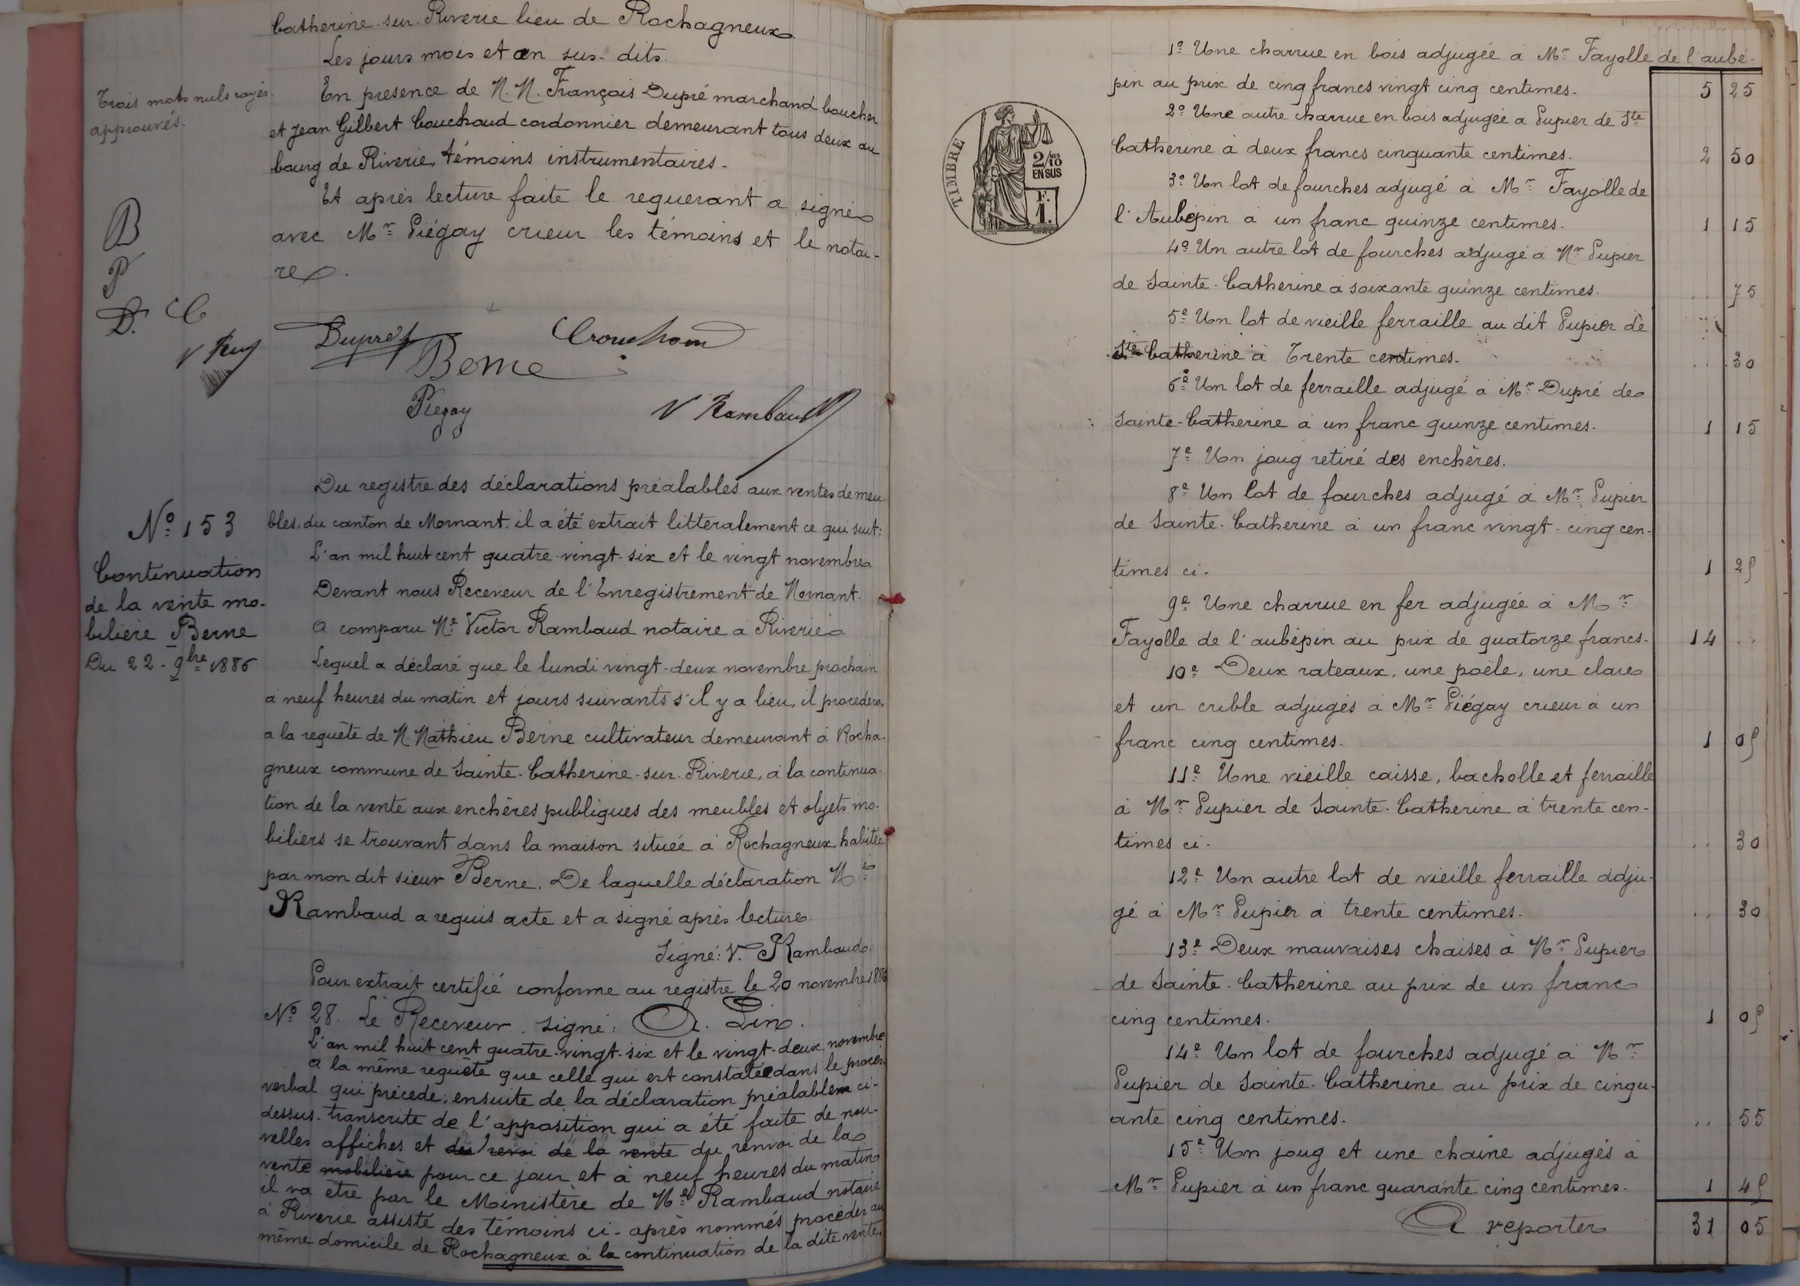 Catherine-sur-Riverie lieu de Rochagneux
Les jours mois et an sus-dits.
En présence de M.M. François Dupré marchand boucher
et Jean Gilbert Couchoud cordonnier demeurant tous deux au
bourg de Riverie, témoins instrumentaires.
Et après lecture faite le requerant a signé
avec Mr Piégay crieur les témoins et le notai-
re.
Trois mots nuls rayés
approuvés.
B
P
D. C
V Ram
Dupré
Crouchoud
Berne
Piégay
V Rambaud
Du registre des déclarations préalables aux ventes de meu-
bles, du canton de Mornant, il a été extrait littéralement ce qui suit:
L'an mil huit cent quatre-vingt-six et le vingt novembre
Devant nous Receveur de l'Enregistrement de Mornant.
A comparu Me Victor Rambaud notaire à Riverie
Lequel a déclaré que le lundi vingt-deux novembre prochain
à neuf heures du matin et jours suivants s'il y a lieu, il procèdera,
à la requête de M. Mathieu Berne cultivateur demeurant à Rocha-
gneux commune de Sainte-Catherine-sur-Riverie, à la continua-
tion de la vente aux enchères publiques des meubles et objets mo-
biliers se trouvant dans la maison située à Rochagneux habitée
par mon dit sieur Berne. De laquelle déclaration Me
Rambaud a requis acte et a signé après lecture.
Signé: V. Rambaud
Pour extrait certifié conforme au registre le 20 novembre 1886
No 28. Le Receveur. Signé: A. Lin.
No 153
Continuation
de la vente mo-
bilière Berne
Du 22-9bre 1886
L'an mil huit cent quatre-vingt-six et le vingt-deux novembre
A la même requête que celle qui est constatée dans le procès-
verbal qui précède, ensuite de la déclaration préalable ci-
dessus transcrite de l'apposition qui a été faite de nou-
velles affiches et du renvoi de la vente du renvoi de la
vente mobilière pour ce jour et à neuf heures du matin
il va être par le Ministère de Me Rambaud notaire
à Riverie assisté des témoins ci-après nommés procéder au
même domicile de Rochagneux à la continuation de la dite vente.
TIMBRE
2/10
EN SUS
F.
1.
1o Une charrue en bois adjugée à Mr Fayolle de l'aubé-
pin au prix de cinq francs vingt cinq centimes. 5 25
2o Une autre charrue en bois adjugée a Pupier de Ste
Catherine à deux francs cinquante centimes. 2 50
3o Un lot de fourches adjugé à Mr Fayolle de
l'Aubépin à un franc quinze centimes. 1 15
4o Un autre lot de fourches adjugé à Mr Pupier
de Sainte-Catherine à soixante quinze centimes. .. 75
5e Un lot de vieille ferraille au dit Pupier de
Ste Catherine à Trente centimes. .. 30
6e Un lot de ferraille adjugé à Mr Dupré de
Sainte-Catherine à un franc quinze centimes. 1 15
7e Un joug retiré des enchères.
8e Un lot de fourches adjugé à Mr Pupier
de Sainte-Catherine à un franc vingt-cinq cen-
times ci. 1 25
9e Une charrue en fer adjugée à Mr
Fayolle de l'aubépin au prix de quatorze francs. 14 ..
10e Deux rateaux, une poële, une claie
et un crible adjugés à Mr Piégay crieur à un
franc cinq centimes. 1 05
11e Une vieille caisse, bacholle et ferraille
à Mr Pupier de Sainte-Catherine à trente cen-
times ci. .. 30
12e Un autre lot de vieille ferraille adju-
gé à Mr Pupier à trente centimes. .. 30
13e Deux mauvaises chaises à Mr Pupier
de Sainte-Catherine au prix de un franc
cinq centimes. 1 05
14e Un lot de fourches adjugé à Mr
Pupier de Sainte-Catherine au prix de cinqu-
ante cinq centimes. .. 55
15e Un joug et une chaîne adjugés à
Mr Pupier à un franc quarante cinq centimes. 1 45
A reporter 31 05